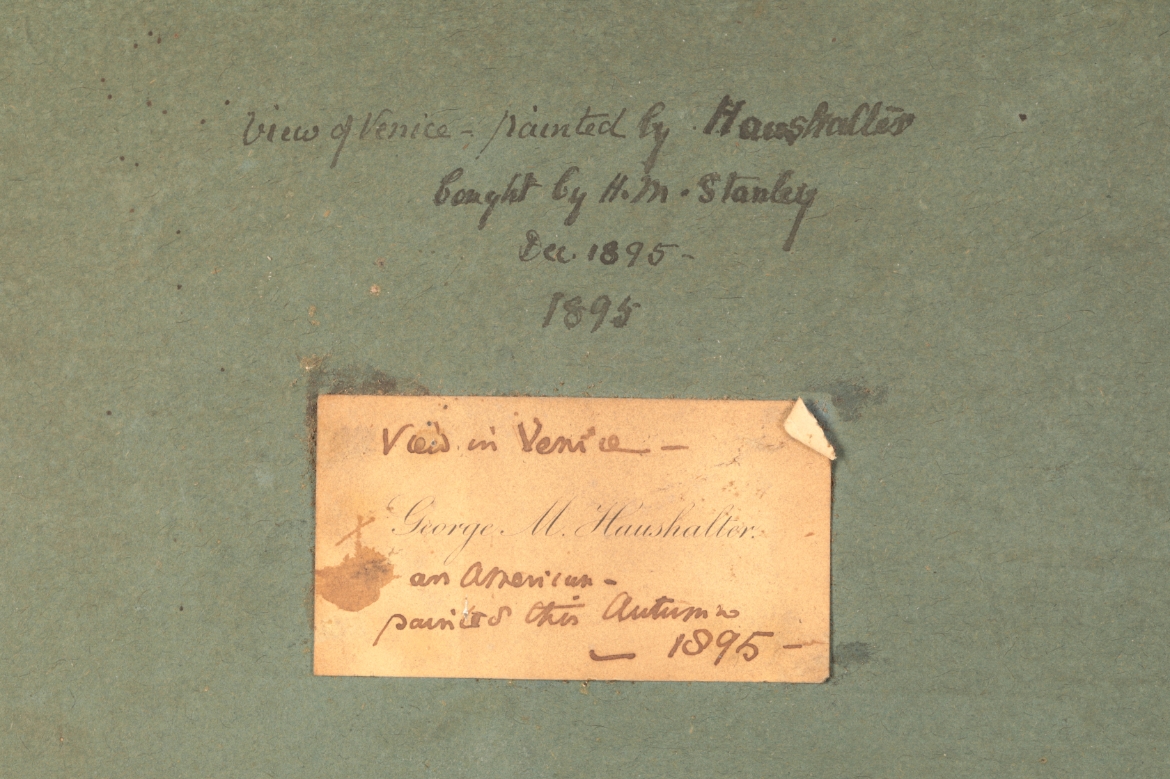 View of Venice - painted by Haushalter
bought by H. M. Stanley
Dec. 1895 -
1895
View in Venice —
George M. Haushalter.
an American -
painted this Autumn
— 1895 —